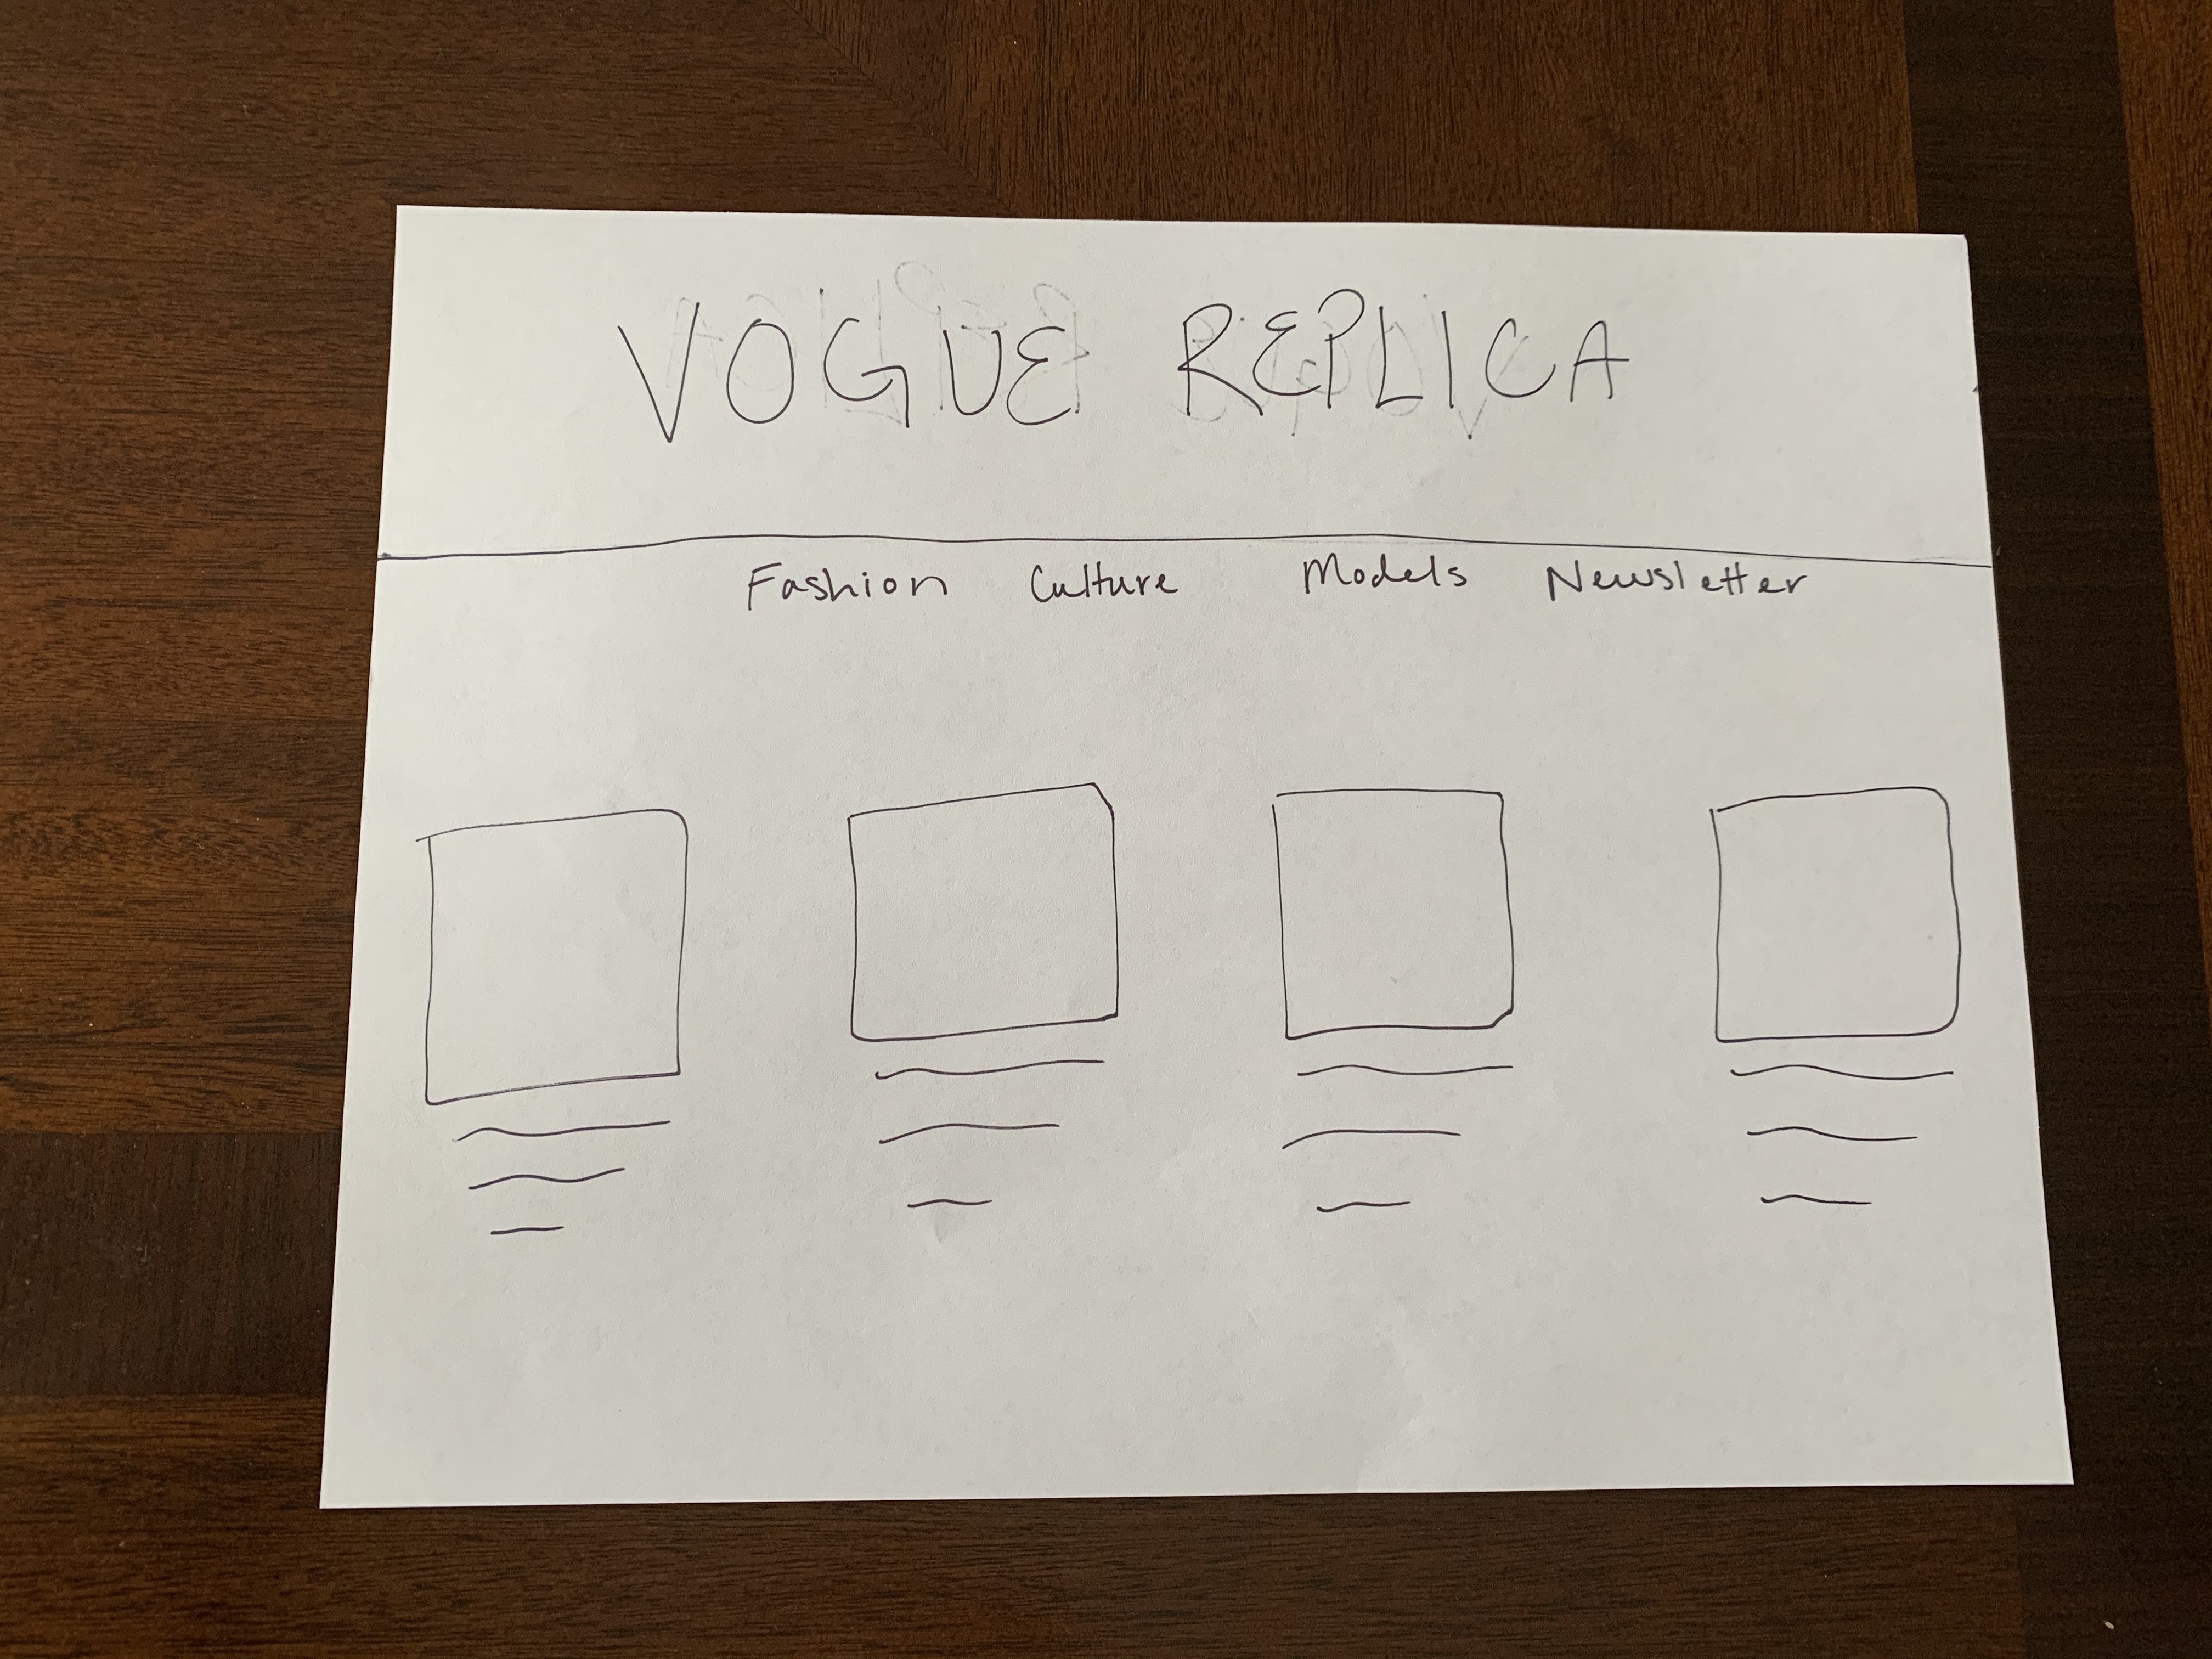 VOGUE REPLICA
Fashion Culture Models Newsletter